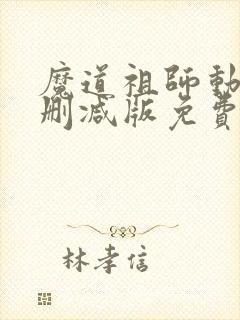 魔道祖師動
刪減版免費
林孝信